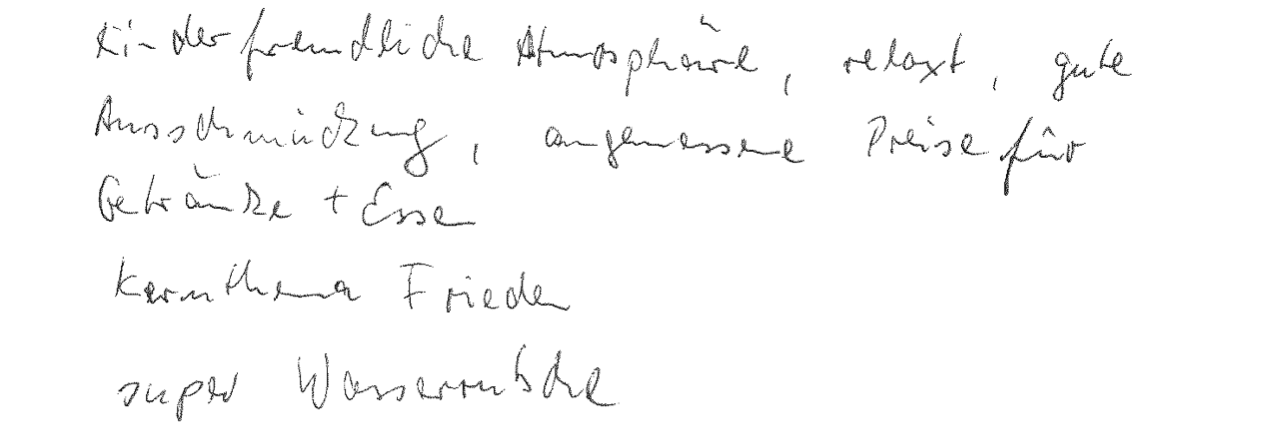 Kinderfreundliche Atmosphäre, relaxt, gute
Ausschmückung, angemessene Preise für
Getränke + Essen
Kernthema Frieden
super Wasserrutsche